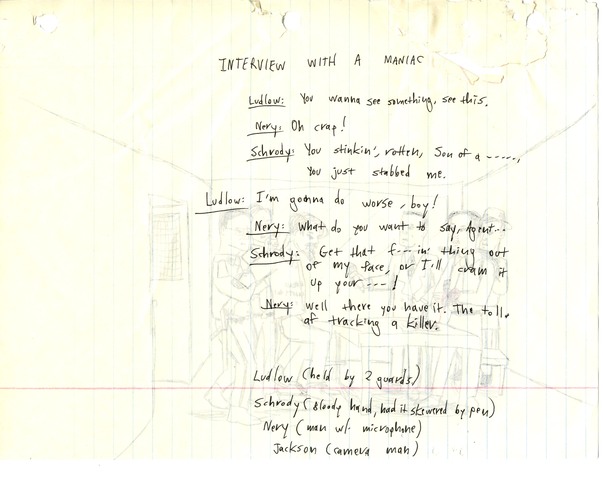 INTERVIEW WITH A MANIAC
Ludlow: You wanna see something, see this.
Nery: Oh crap!
Schrody: You stinkin', rotten, Son of a -----,
You just stabbed me.
Ludlow: I'm gonna do worse, boy!
Nery: What do you want to say, Agent...
Schrody: Get that f---in' thing out
of my face, or I'll cram it
up your ---!
Nery: well there you have it. The toll.
of tracking a killer.
Ludlow (held by 2 guards)
Schrody (Bloody hand, had it skewered by pen)
Nery (man w/. microphone)
Jackson (camera man)